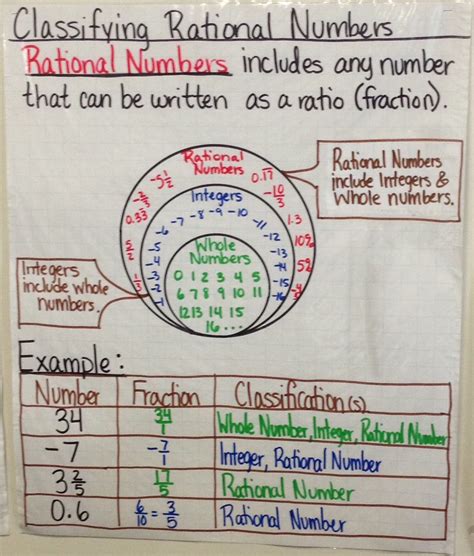 Classifying Rational Numbers
Rational Numbers includes any number
that can be written as a ratio (fraction).
Rational
Numbers
-5 1/2
0.17
-2/3
-10/3
0.33
1.3
5/2
10%
5%
1/3
-4/5
Integers
-7 -8 -9 -10
-6
-11
-5
-12
-4
-13
-3
-14
-2
-15
-1
-16
Whole
Numbers
0 1 2 3 4 5
6 7 8 9 10 11
12 13 14 15
16...
Rational Numbers
include Integers &
Whole numbers.
Integers
include whole
numbers.
Example:
Number Fraction Classification(s)
34 34/1 Whole Number, Integer, Rational Number
-7 -7/1 Integer, Rational Number
3 2/5 17/5 Rational Number
0.6 6/10 = 3/5 Rational Number